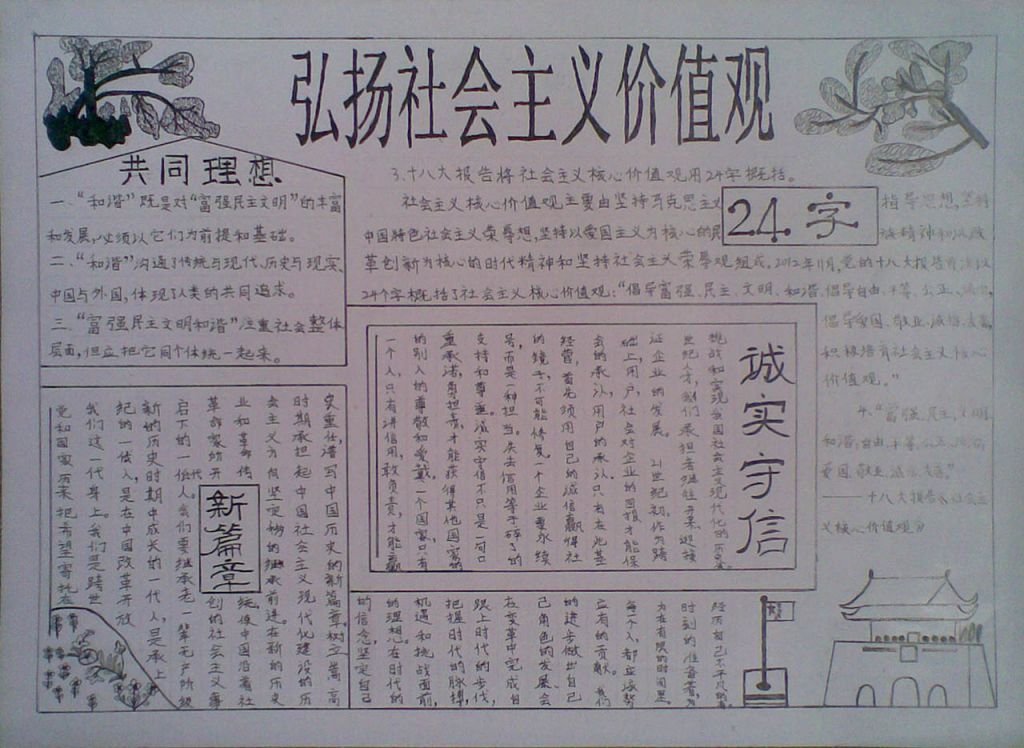 弘扬社会主义价值观
共同理想
一、“和谐”既是对“富强民主文明”的丰富
和发展,必须以它们为前提和基础。
二、“和谐”沟通了传统与现代、历史与现实、
中国与外国,体现了人类的共同追求。
三、“富强民主文明和谐”注重社会整体
层面,但应把它同个体统一起来。
3.十八大报告将社会主义核心价值观用24字概括。
24.字
社会主义核心价值观主要由坚持马克思主义指导思想,坚持
中国特色社会主义荣辱想,坚持以爱国主义为核心的民族精神和以改
革创新为核心的时代精神和坚持社会主义荣辱观组成。2012年11月,党的十八大报告首次以
24个字概括了社会主义核心价值观:“倡导富强、民主、文明、和谐,倡导自由、平等、公正、法治,
倡导爱国、敬业、诚信、友善,
积极培育社会主义核心
价值观。”
4.“富强、民主、文明、
和谐,自由、平等、公正、法治,
爱国、敬业、诚信、友善”
——十八大报告《社会主
义核心价值观》
诚实守信
挑战和实现我国社会主义现代化的历史。
世纪人才,我们承担着继往开来,迎接
证企业的发展。 21世纪制作为跨
础上,用户、社会对企业的回报才能保
会的承认,用户的承认。只有在此基
经营,首先须用自己的诚信赢得社
的镜子,不可能修复。一个企业要永续
号,而是一种担当。失去信用等于碎了的
支持和尊重。诚实守信不只是一句口
重承诺,勇担责,才能获得其他国家的
的别人的尊敬和爱戴。一个国家,只有
一个人,只有讲信用,敢负责,才能赢
新篇章
史重任,谱写中国历史的新篇章。树立崇高
时期承担起中国社会主义现代化建设的历
会主义方向坚定物的继承前进。在新的历史
业和革命传统,使中国沿着社
革命家所开创的社会主义事
启下的一代人。我们要继承老一辈无产阶级
新的历史时期中成长的一代人,是承上
纪的一代人,是在中国改革开放
我们这一代身上。我们是跨世
党和国家历来把希望寄托在
经历自己不平凡的事
时刻的准备着,
为在有限的时间里
每一个人,都应该努
应有的贡献。我们
的进步做出自己
己角色的发展,会
在变革中完成自
跟上时代的步伐,
把握时代的脉搏,
机遇和挑战面前,
的理想。在时代的
的信念,坚定自己